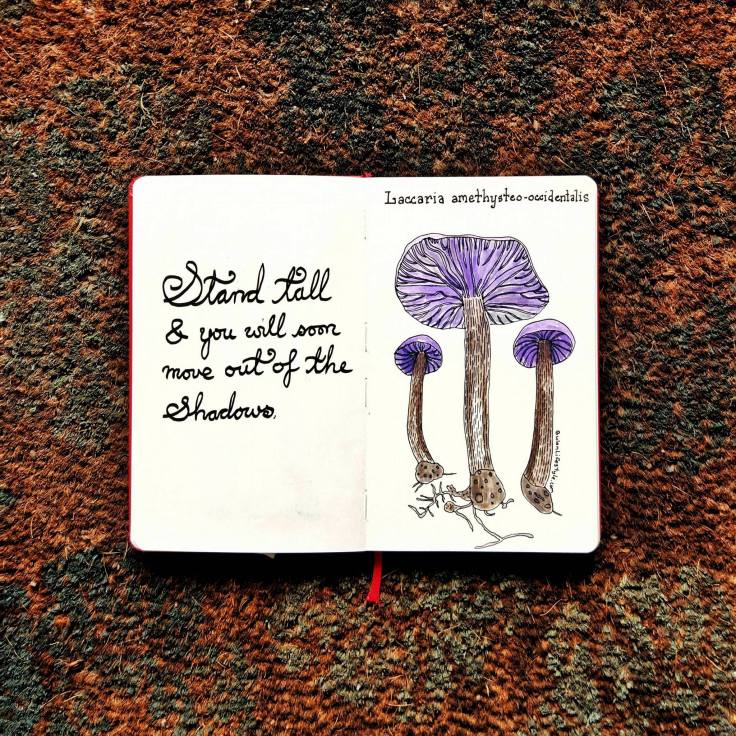 Stand tall
& you will soon
move out of the
Shadows.
Laccaria amethysteo-occidentalis